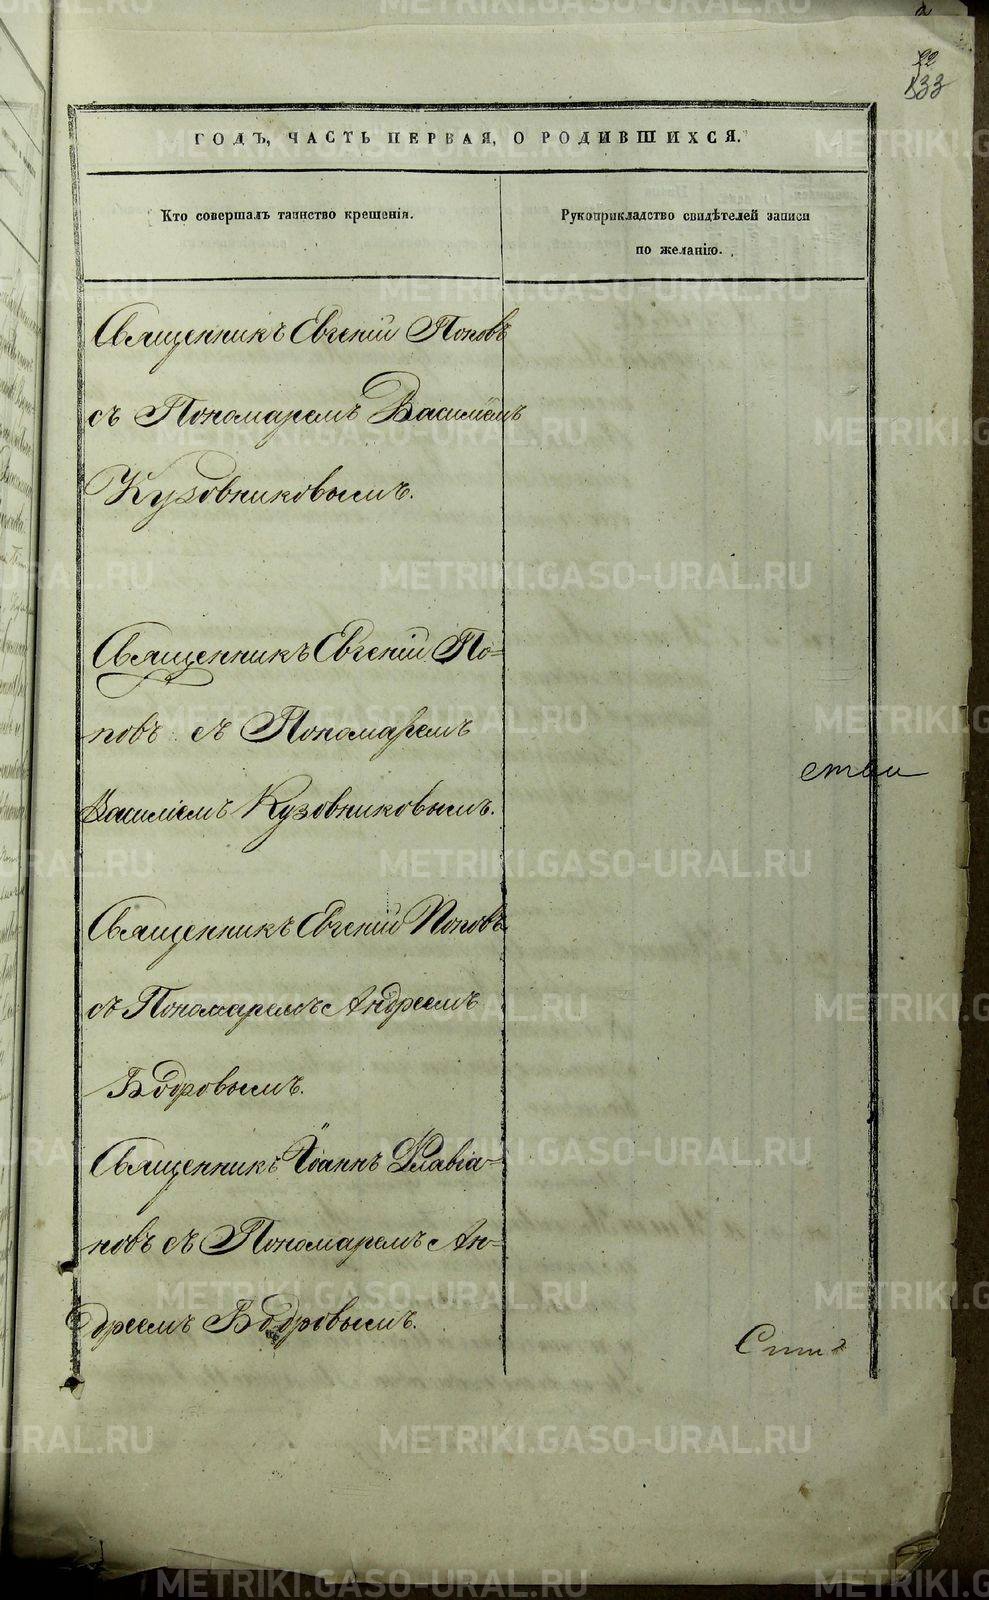 22
133
ГОДЪ, ЧАСТЬ ПЕРВАЯ, О РОДИВШИХСЯ.
Кто совершалъ таинство крещенія.
Рукоприкладство свидѣтелей записи
по желанію.
Священникъ Евгеній Поповъ
съ Пономаремъ Василіемъ
Кузовниковымъ.
Священникъ Евгеній По-
повъ съ Пономаремъ
Василіемъ Кузовниковымъ.
Священникъ Евгеній Поповъ
съ Пономаремъ Андреемъ
Бобровымъ.
Священникъ Іоаннъ Флавіа-
новъ съ Пономаремъ Ан-
дреемъ Бобровымъ.
METRIKI.GASO-URAL.RU